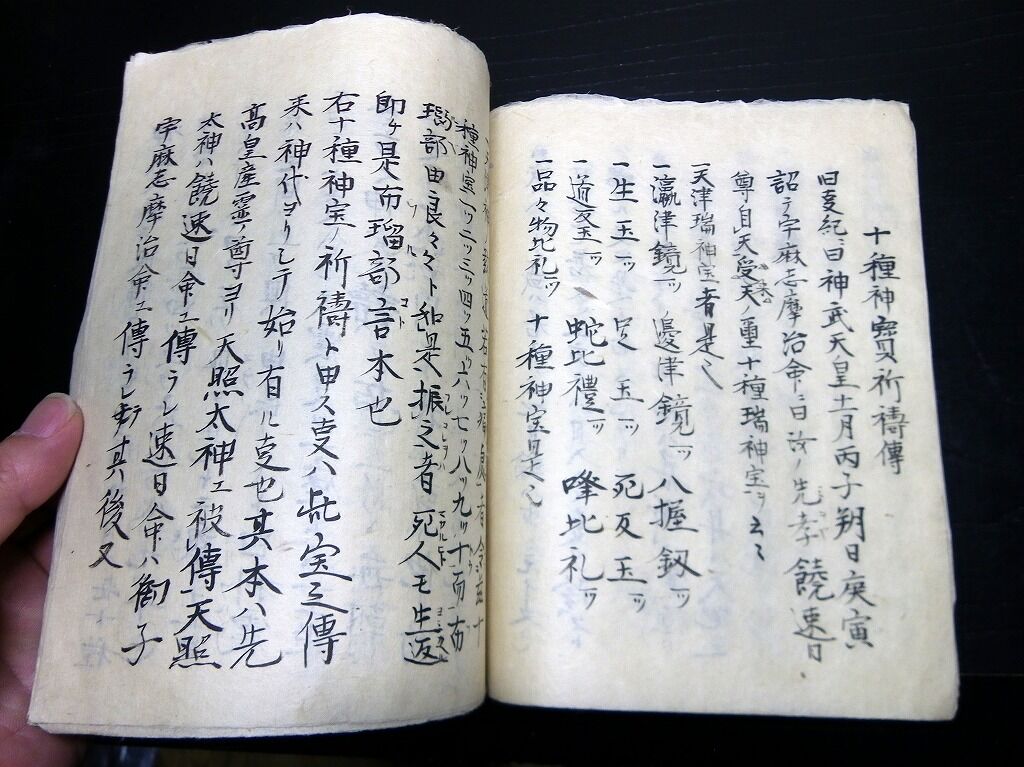 十種神寶祈禱傳
旧事紀ニ曰神武天皇十一月丙子朔日庚寅
詔テ宇麻志摩治命ニ曰汝ノ先考饒速日
尊自天受天ノ璽十種瑞神宝ヲ云々
天津瑞神宝者是也
一瀛津鏡一ッ 邊津鏡一ッ 八握釼一ッ
一生玉一ッ 足玉一ッ 死反玉一ッ
一道反玉一ッ 蛇比禮一ッ 蜂比礼一ッ
一品々物比礼一ッ 十種神宝是也
種神宝一ッ二ッ三ッ四ッ五ッ六ッ七ッ八ッ九ッ十而布
瑠部由良々々ト如是振之者死人モ生返
即チ是布瑠部言本也
右十種神宝ノ祈禱ト申ス事ハ此宝之傳
来ハ神代ヨリシテ始リ有ル事也其本ハ先
高皇産霊ノ尊ヨリ天照太神エ被傳天照
太神ハ饒速日命エ傳ラレ速日命ハ御子
宇麻志摩治命エ傳ラレ其後又